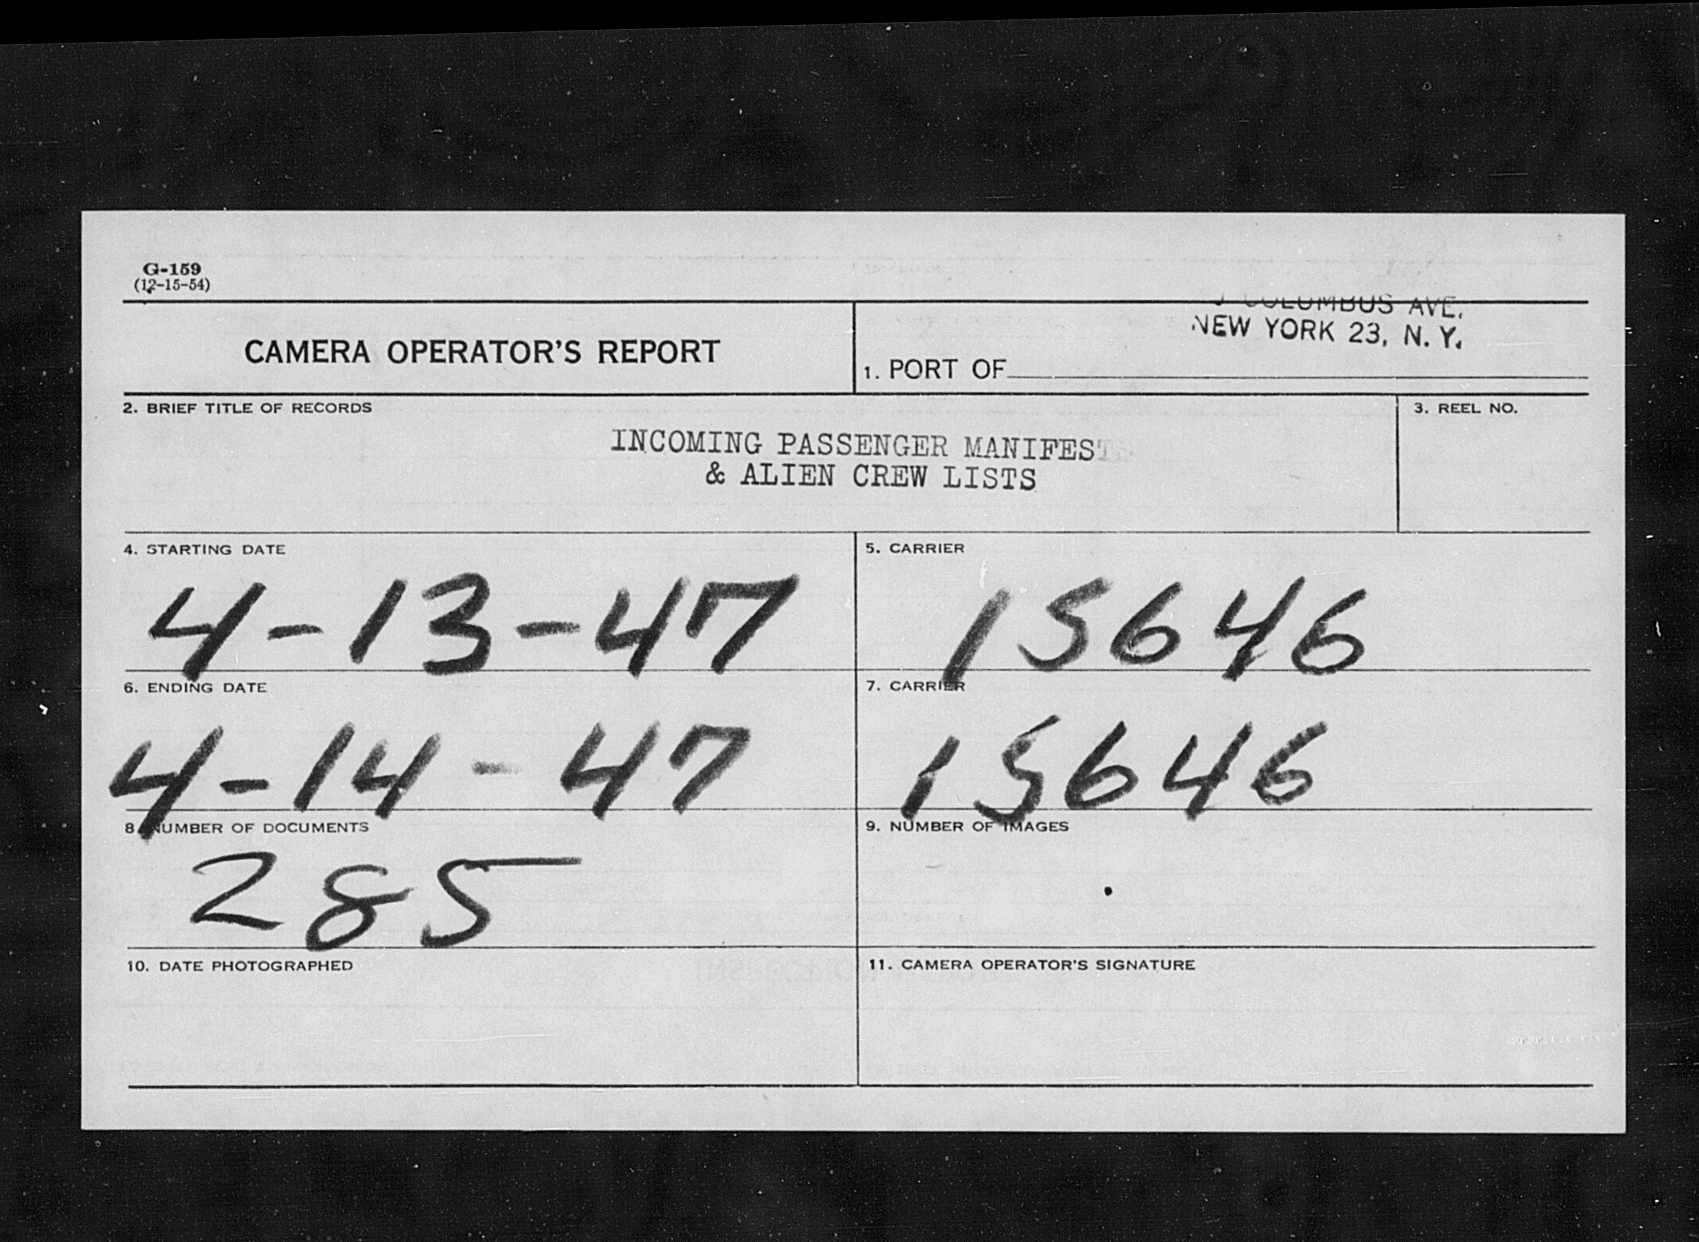 G-159
(12-15-54)
CAMERA OPERATOR'S REPORT
COLUMBUS AVE.
NEW YORK 23, N.Y.
1. PORT OF
2. BRIEF TITLE OF RECORDS
3. REEL NO.
INCOMING PASSENGER MANIFESTS
& ALIEN CREW LISTS
4. STARTING DATE
5. CARRIER
4-13-47
15646
6. ENDING DATE
7. CARRIER
4-14-47
15646
8. NUMBER OF DOCUMENTS
9. NUMBER OF IMAGES
285
10. DATE PHOTOGRAPHED
11. CAMERA OPERATOR'S SIGNATURE